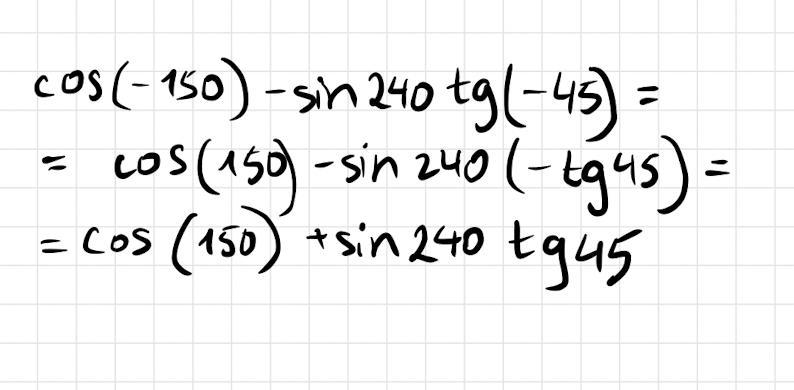 cos(-150) - sin 240 tg(-45) =
= cos(150) - sin 240 (-tg45) =
= cos (150) + sin 240 tg45